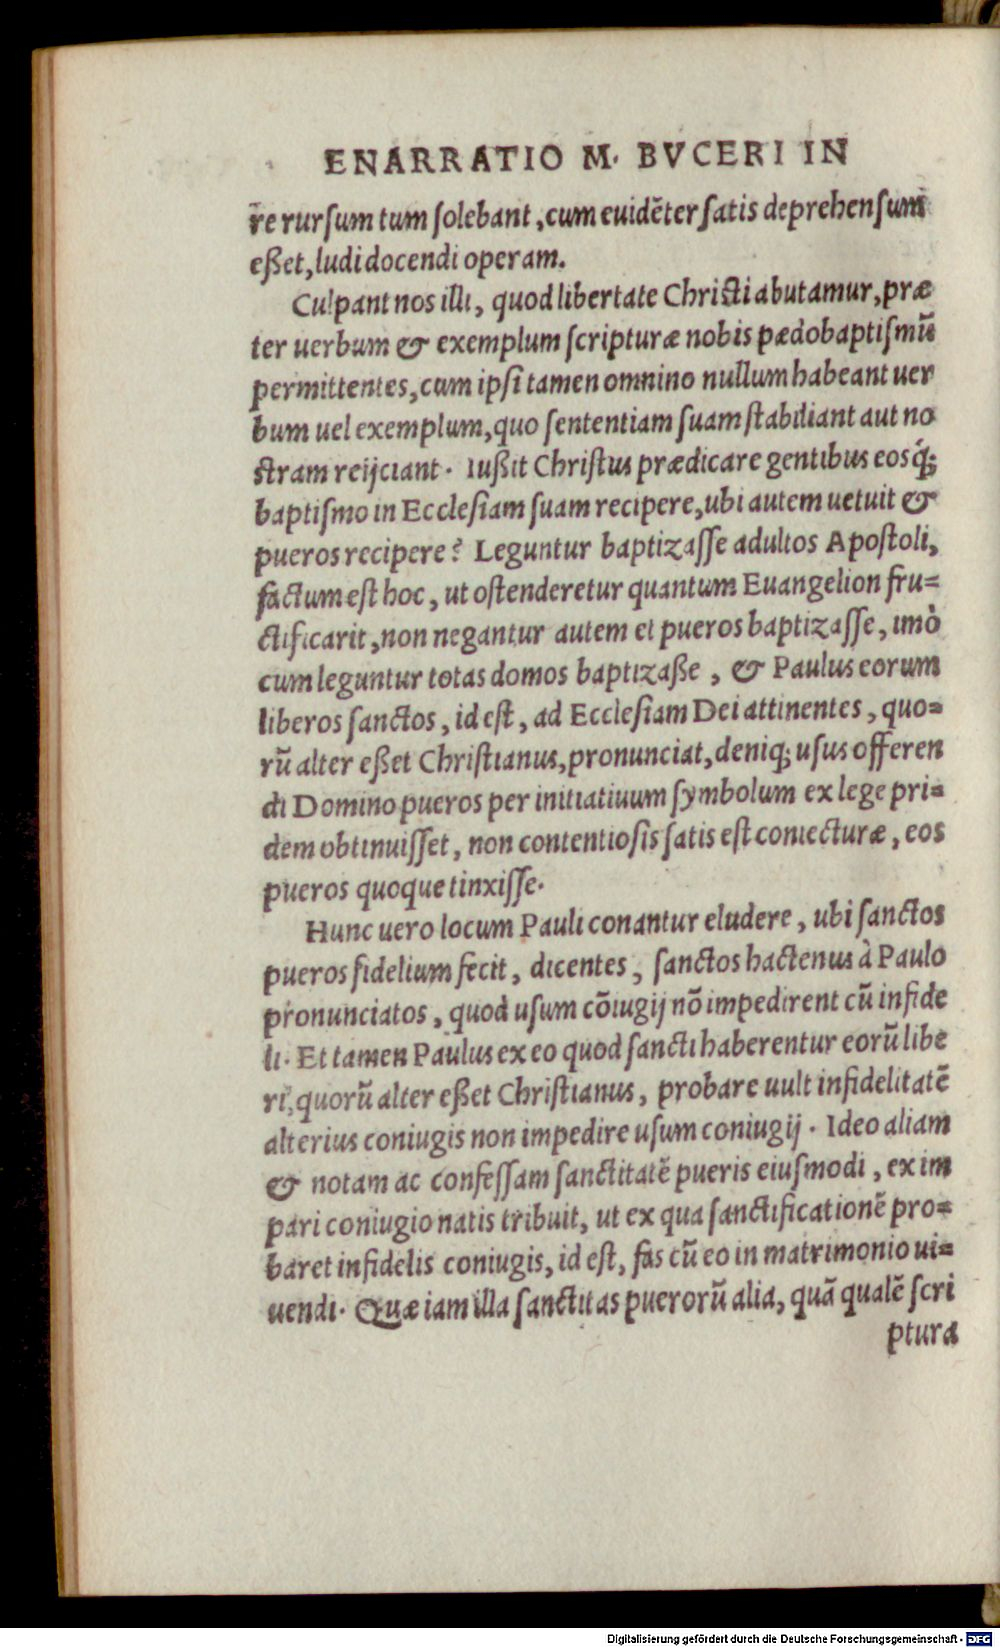 ENARRATIO M. BVCERI IN
re rurſum tum ſolebant, cum euidẽter ſatis deprehenſum
eßet, ludi docendi operam.
Culpant nos illi, quod libertate Chriſti abutamur, præ
ter uerbum & exemplum ſcripturæ nobis pædobaptiſmũ
permittentes, cum ipſi tamen omnino nullum habeant uer
bum uel exemplum, quo ſententiam ſuam ſtabiliant aut no
ſtram reijciant. Iußit Chriſtus prædicare gentibus eosq́;
baptiſmo in Eccleſiam ſuam recipere, ubi autem uetuit &
pueros recipere? Leguntur baptizaſſe adultos Apoſtoli,
factum eſt hoc, ut oſtenderetur quantum Euangelion fru=
ctificarit, non negantur autem et pueros baptizaſſe, imò
cum leguntur totas domos baptizaße, & Paulus eorum
liberos ſanctos, id eſt, ad Eccleſiam Dei attinentes, quo=
rũ alter eßet Chriſtianus, pronunciat, deniq; uſus offeren
di Domino pueros per initiatiuum ſymbolum ex lege pri=
dem obtinuiſſet, non contentioſis ſatis eſt coniecturæ, eos
pueros quoque tinxiſſe.
Hunc uero locum Pauli conantur eludere, ubi ſanctos
pueros fidelium fecit, dicentes, ſanctos hactenus à Paulo
pronunciatos, quod uſum cõiugij nõ impedirent cũ infide
li. Et tamen Paulus ex eo quod ſancti haberentur eorũ libe
ri, quorũ alter eßet Chriſtianus, probare uult infidelitatẽ
alterius coniugis non impedire uſum coniugij. Ideo aliam
& notam ac confeſſam ſanctitatẽ pueris eiuſmodi, ex im
pari coniugio natis tribuit, ut ex qua ſanctificationẽ pro=
baret infidelis coniugis, id eſt, fas cũ eo in matrimonio ui=
uendi. Quæ iam illa ſanctitas puerorũ alia, quã qualẽ ſcri
ptura
Digitalisierung gefördert durch die Deutsche Forschungsgemeinschaft - DFG